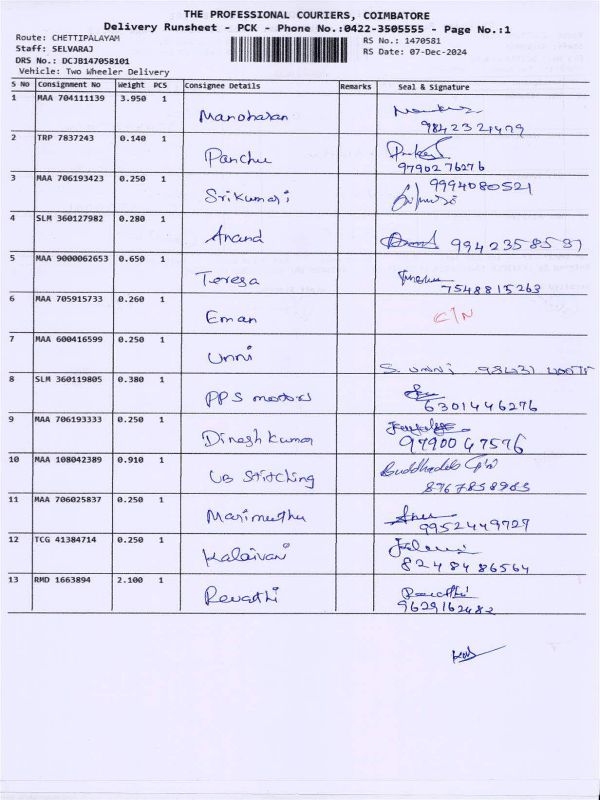 THE PROFESSIONAL COURIERS, COIMBATORE
Delivery Runsheet - PCK - Phone No.:0422-3505555 - Page No.:1
Route: CHETTIPALAYAM
RS No.: 1470581
Staff: SELVARAJ
RS Date: 07-Dec-2024
DRS No.: DCJB147058101
Vehicle: Two Wheeler Delivery
S No Consignment No Weight PCS Consignee Details Remarks Seal & Signature
1 MAA 704111139 3.950 1 Manoharan
2 TRP 7837243 0.140 1 Panchu
9790276276
3 MAA 706193423 0.250 1 Srikumari 9994080521
4 SLM 360127982 0.280 1 Anand 9942358537
5 MAA 9000062653 0.650 1 Teresa
7548815263
6 MAA 705915733 0.260 1 Eman C/N
7 MAA 600416599 0.250 1 Unni
S. Unni
8 SLM 360119805 0.380 1 PPS motors
6301446276
9 MAA 706193333 0.250 1 Dinesh Kumar
9790047576
10 MAA 108042389 0.910 1 UB Stitching
8767858985
11 MAA 706025837 0.250 1 Marimuthu
9952449727
12 TCG 41384714 0.250 1 Kalaivani
8248486564
13 RMD 1663894 2.100 1 Revathi Revathi
9629162482